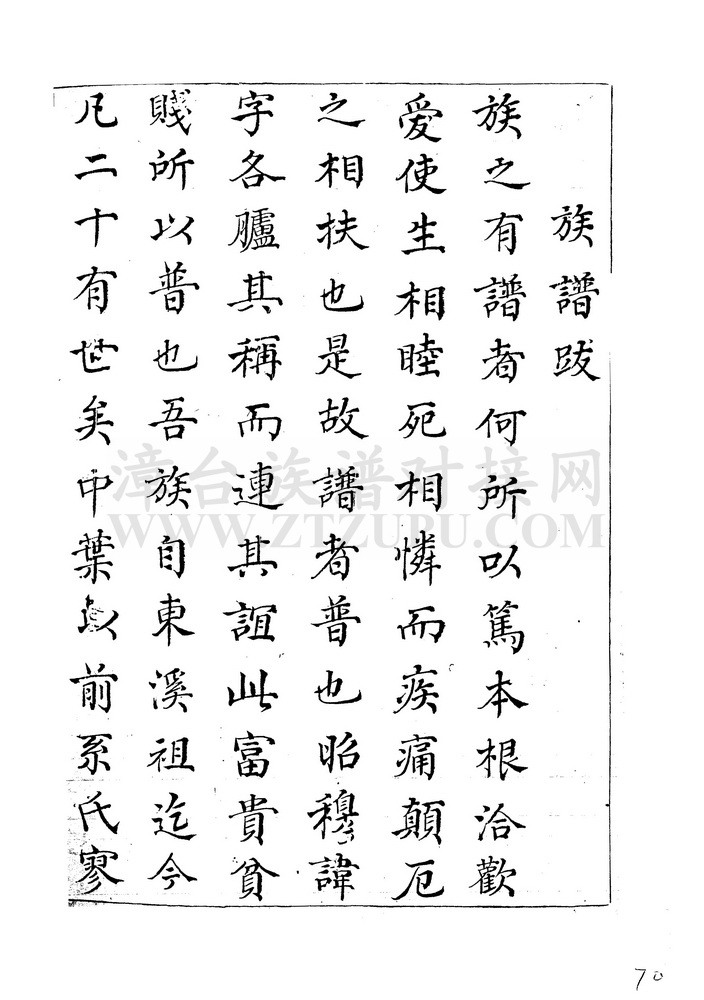 族譜跋
族之有譜者何所以篤本根洽歡
愛使生相睦死相憐而疾痛顛厄
之相扶也是故譜者普也昭穆諱
字各臚其稱而連其誼此富貴貧
賤所以普也吾族自東溪祖迄今
凡二十有世矣中葉以前系氏寥
漳台族谱对接网
WWW.ZTZUPU.COM
70